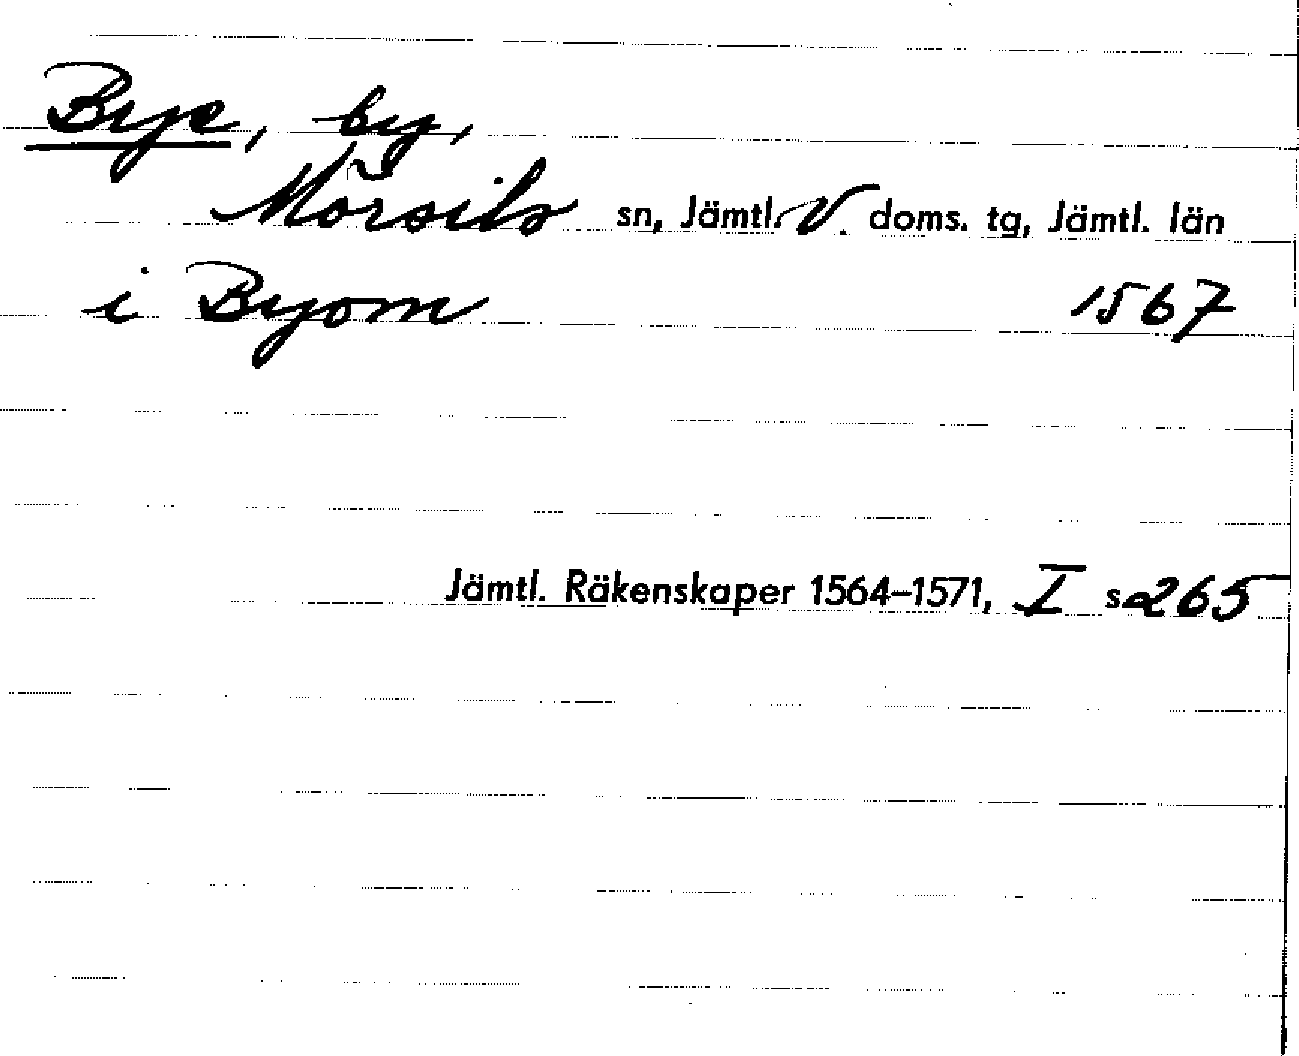 Bye, by,
Mörsils sn, Jämtl. V. doms. tg, Jämtl. län
i Byom 1567
Jämtl. Räkenskaper 1564–1571, I s 265